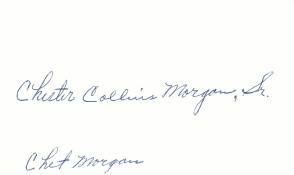 Chester Collins Morgan, Sr.
Chet Morgan